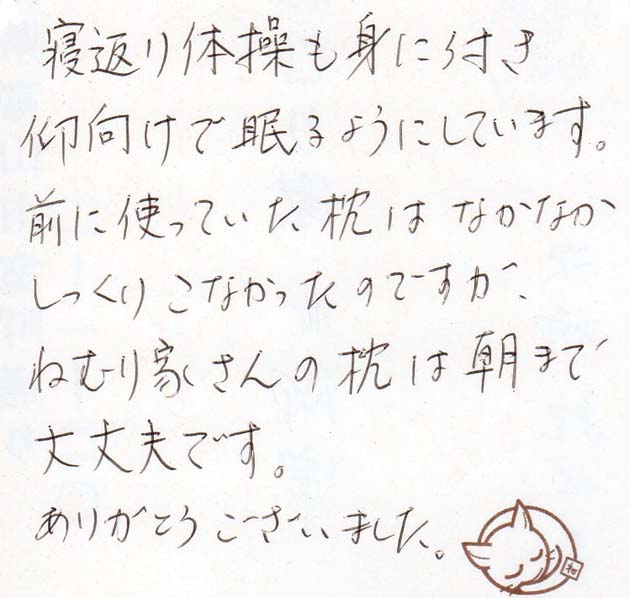 寝返り体操も身に付き
仰向けで眠るようにしています。
前に使っていた枕はなかなか
しっくりこなかったのですが、
ねむり家さんの枕は朝まで
大丈夫です。
ありがとうございました。